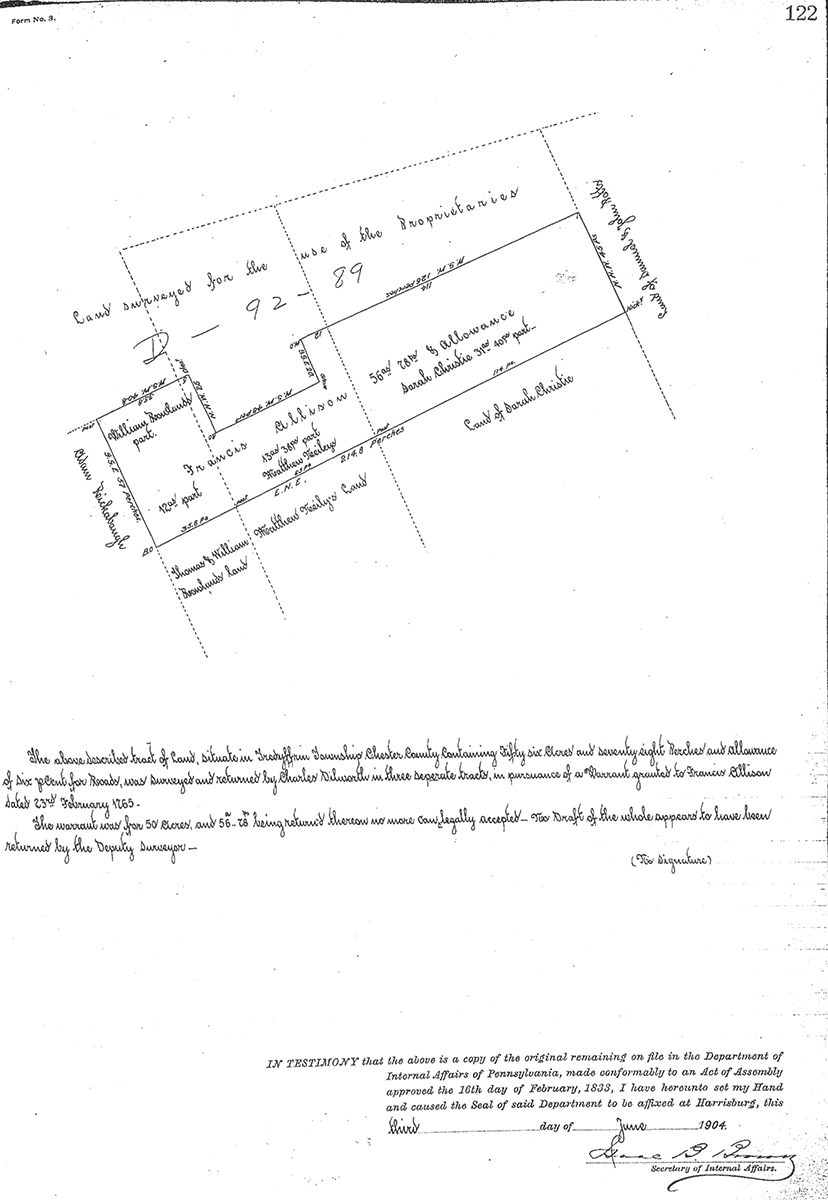 Form No. 3.
122
Land surveyed for the use of the Proprietaries
D – 92 – 89
Land of Daniel & John
114
56as 78ps & Allowance
Sarah Christie 31as 40ps part
114 ps.
Land of Sarah Christie
William Rowland's
part.
Francis Allison
13as 38ps part
Matthew Neilys
12as part
Adam
S.S.E 57 Perches.
B.O
post
post
E.N.E. 214.8 Perches
Thomas & William
Rowlands land
Matthew Neilys Land
The above described tract of Land, situate in Tredyffrin Township Chester County Containing Fifty six Acres and seventy eight Perches and allowance
of six pCent for Roads, was surveyed and returned by Charles Dilworth in three seperate tracts, in pursuance of a Warrant granted to Francis Allison
dated 23rd February 1765-
The warrant was for 50 Acres, and 56a-78ps being return'd thereon no more can legally accepted- No Draft of the whole appears to have been
returned by the Deputy Surveyor-
(No Signature)
IN TESTIMONY that the above is a copy of the original remaining on file in the Department of
Internal Affairs of Pennsylvania, made conformably to an Act of Assembly
approved the 16th day of February, 1833, I have hereunto set my Hand
and caused the Seal of said Department to be affixed at Harrisburg, this
third day of June 1904.
Isaac B Brown
Secretary of Internal Affairs.